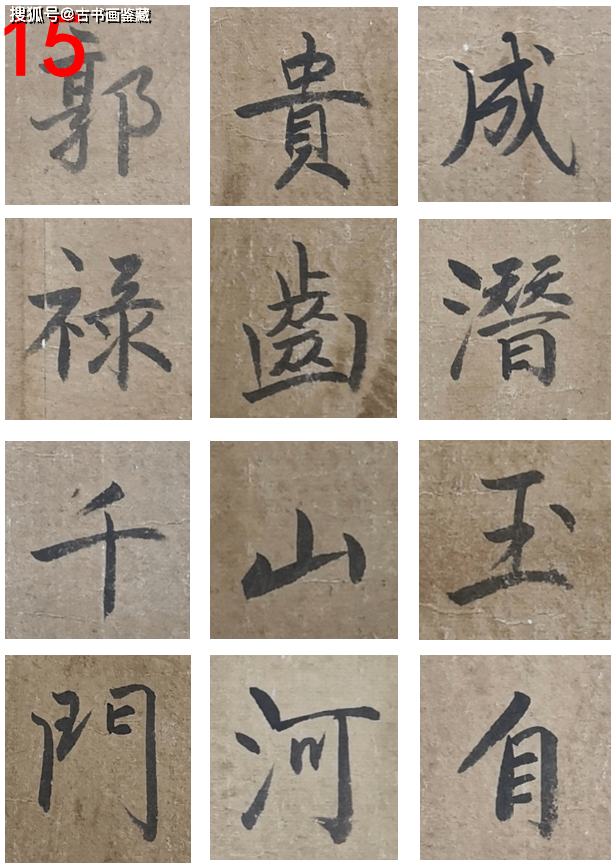 搜狐号@古书画鉴藏
15
郭 貴 成
禄 齒 潛
千 山 玉
門 河 自